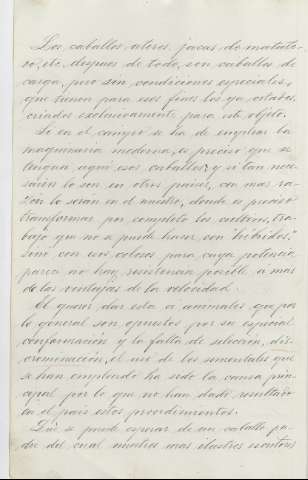 Los caballos ateros, jacas de matute-
ro, etc, despues de todo, son caballos de
carga, pero sin condiciones especiales,
que tienen para esos fines los ya citados,
criados esclusivamente para este objeto.
Si en el campo se ha de emplear la
maquinaria moderna, es preciso que se
tengan aqui esos caballos, y si tan nece-
sarios lo son en otros paises, con mas ra-
zón lo serán en el nuestro, donde es preciso
transformar por completo los cultivos, tra-
bajo que no se puede hacer con "hibridos,"
sino con esos colosos para cuya potencia
parece no hay resistencia posible a mas
de las ventajas de la velocidad.
Al querer dar esta a animales que por
lo general son opuestos por su especial
conformación y la falta de selección, dis-
criminación, el uso de los sementales que
se han empleado ha sido la causa prin-
cipal por lo que no han dado resultado
en el pais estos procedimientos.
Qué se puede esperar de un caballo pa-
dre del cual nuestros mas ilustres escritores